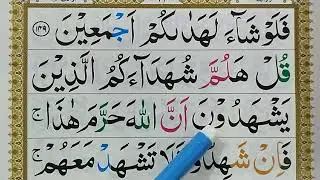 فَلَوْ شَآءَ لَهَدٰىكُمْ اَجْمَعِيْنَ ۝۱۴۹
قُلْ هَلُمَّ شُهَدَآءَكُمُ الَّذِيْنَ
يَشْهَدُوْنَ اَنَّ اللّٰهَ حَرَّمَ هٰذَا ۚ
فَاِنْ شَهِدُوْا فَلَا تَشْهَدْ مَعَهُمْ ۚ